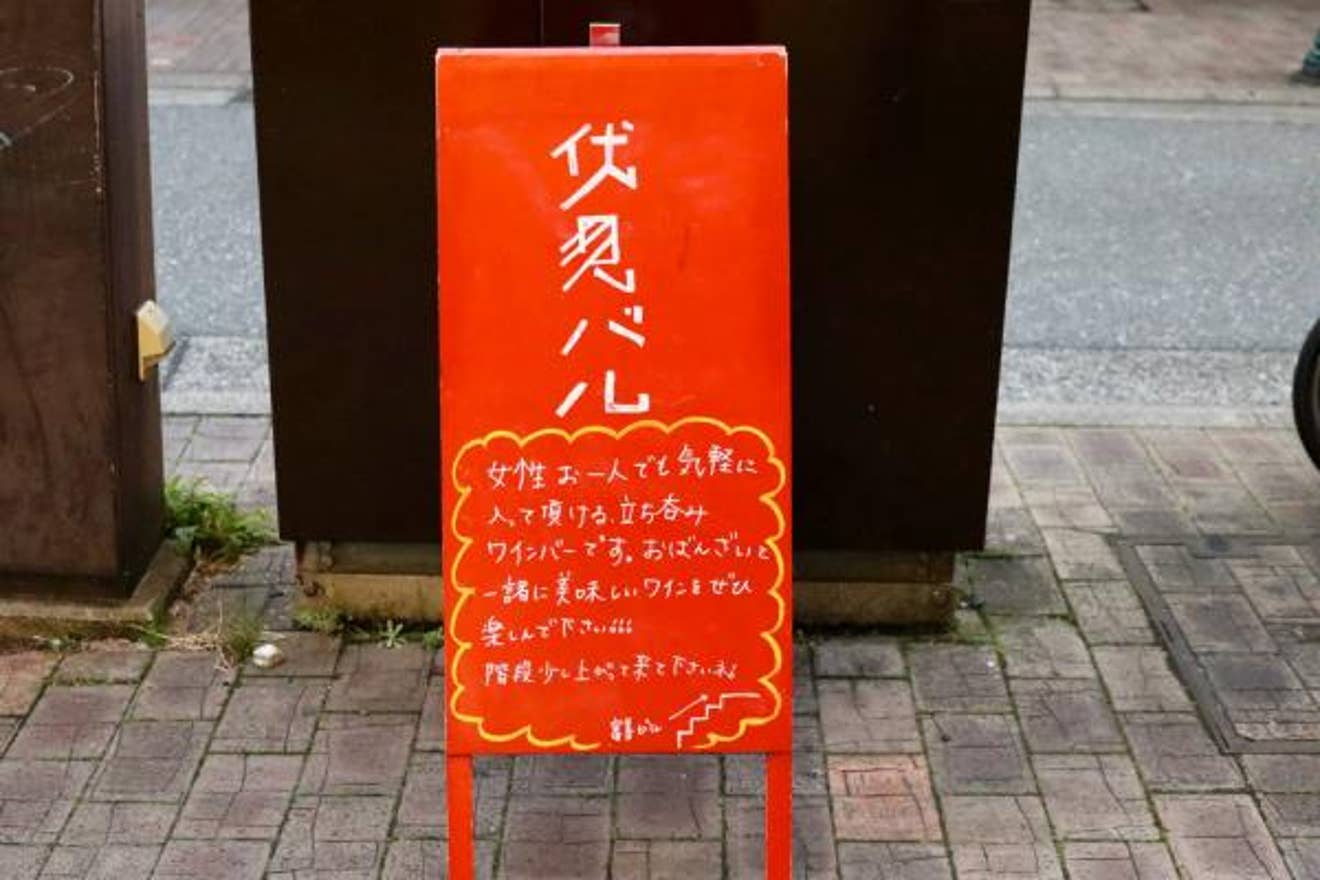 伏見バル
女性お一人でも気軽に
入って頂ける、立ち呑み
ワインバーです。おばんざいと
一緒に美味しいワインをぜひ
楽しんで下さい
階段少し上がって来て下さいネ♪